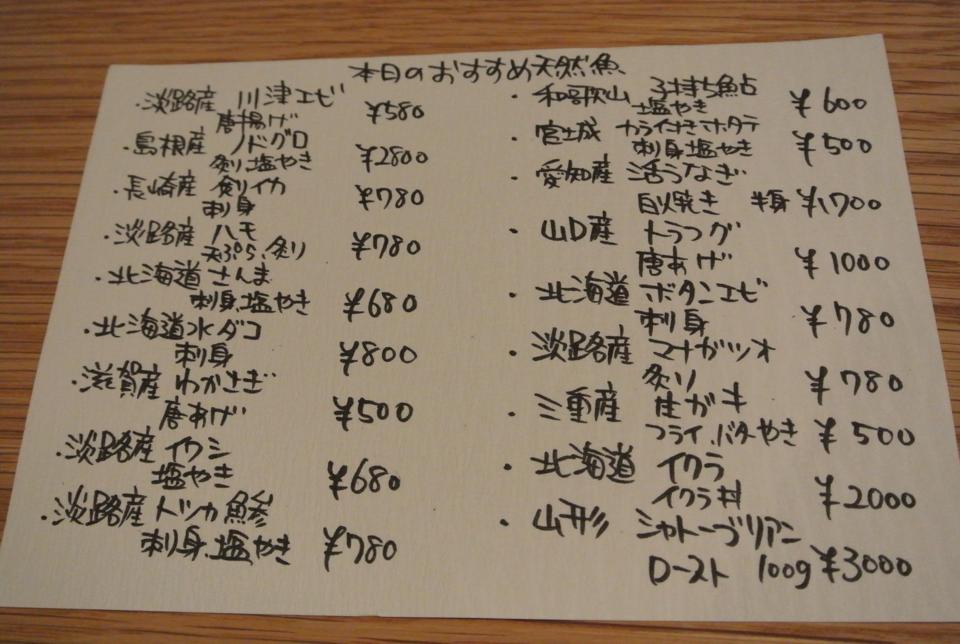 本日のおすすめ天然魚
・淡路産 川津エビ
唐揚げ ¥580
・島根産 ノドグロ
炙り、塩やき ¥2800
・長崎産 剣イカ
刺身 ¥780
・淡路産 ハモ
天ぷら、炙り ¥780
・北海道 さんま
刺身、塩やき ¥680
・北海道 水ダコ
刺身 ¥800
・滋賀産 わかさぎ
唐あげ ¥500
・淡路産 イワシ
塩やき ¥680
・淡路産 トツカ鯵
刺身、塩やき ¥780
・和歌山 子持ち鮎
塩やき ¥600
・宮城 カラ付きホタテ
刺身、塩やき ¥500
・愛知産 活うなぎ
白焼き 半身 ¥1,700
・山口産 トラフグ
唐あげ ¥1000
・北海道 ボタンエビ
刺身 ¥780
・淡路産 マナガツオ
炙り ¥780
・三重産 生ガキ
フライ、バターやき ¥500
・北海道 イクラ
イクラ丼 ¥2000
・山形 シャトーブリアン
ロースト 100g ¥3000